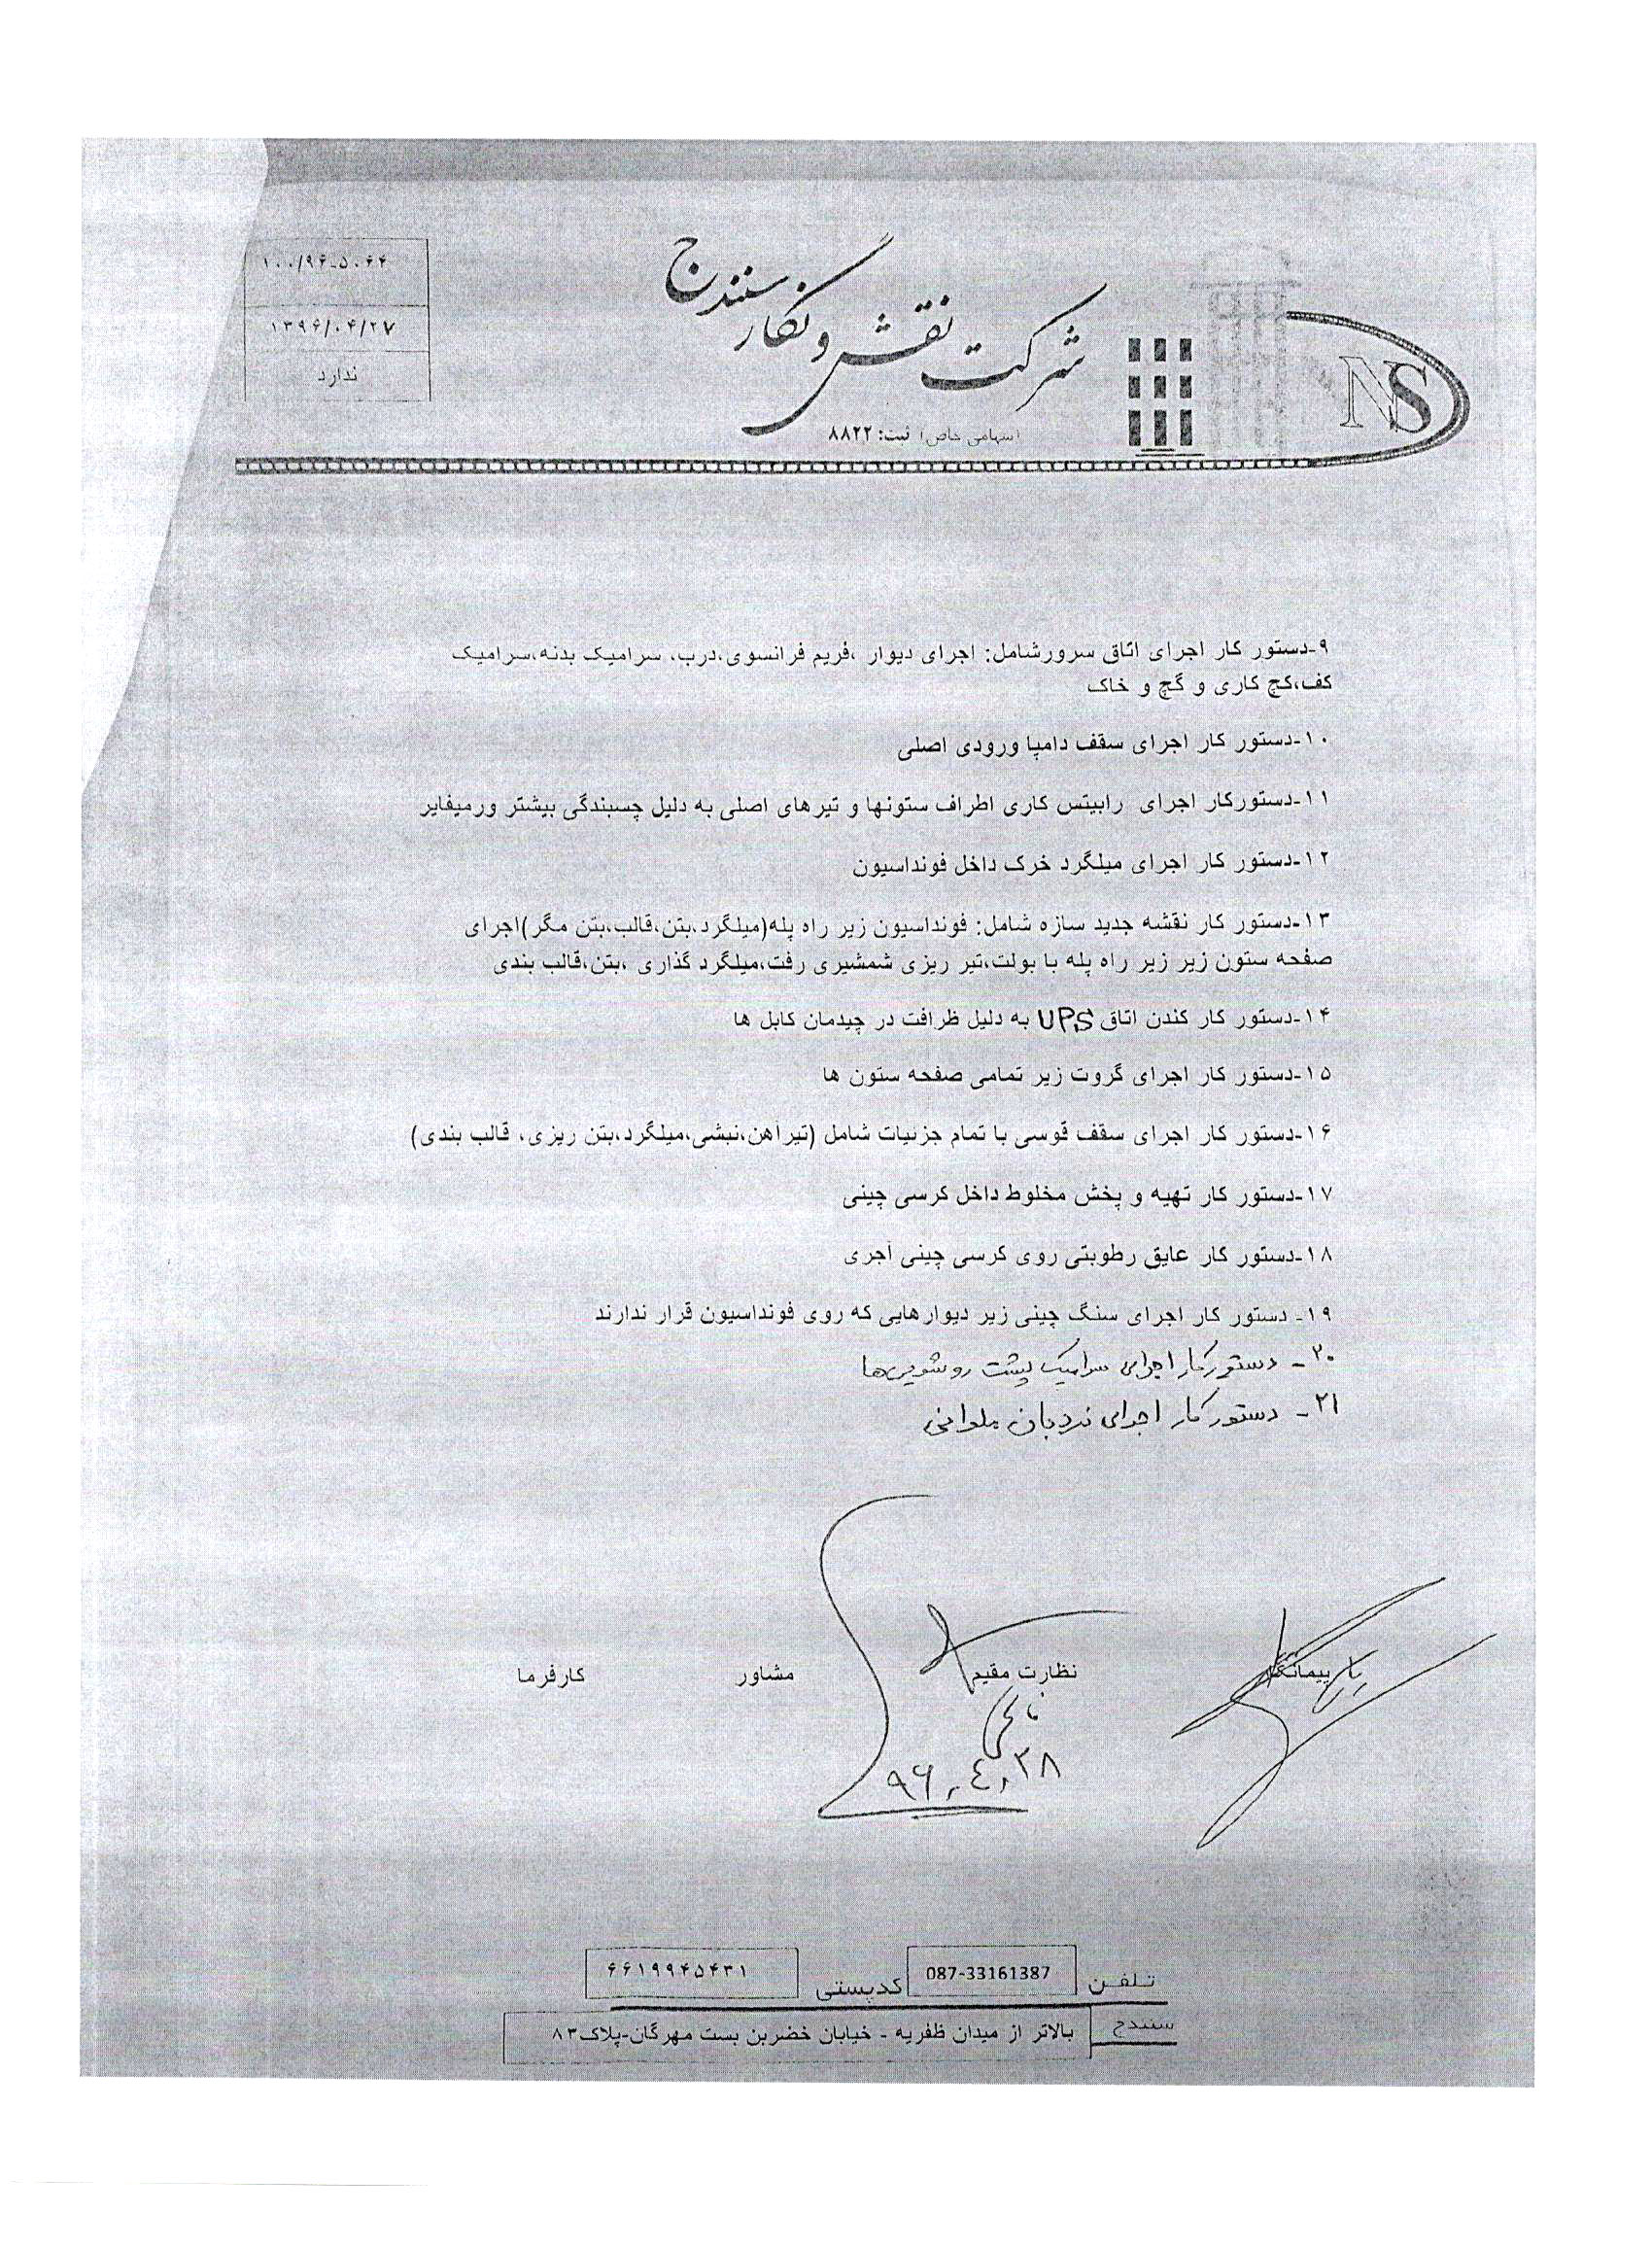 ۱۰۰/۹۶-۵۰۶۴
۱۳۹۶/۰۴/۲۷
ندارد
شرکت نقش و نگار سنندج
(سهامی خاص) ثبت: ۸۸۲۲
NS
۹-دستور کار اجرای اتاق سرورشامل: اجرای دیوار ،فریم فرانسوی،درب، سرامیک بدنه،سرامیک
کف،کچ کاری و گچ و خاک
۱۰-دستور کار اجرای سقف دامپا ورودی اصلی
۱۱-دستورکار اجرای رابیتس کاری اطراف ستونها و تیرهای اصلی به دلیل چسبندگی بیشتر ورمیفایر
۱۲-دستور کار اجرای میلگرد خرک داخل فونداسیون
۱۳-دستور کار نقشه جدید سازه شامل: فونداسیون زیر راه پله(میلگرد،بتن،قالب،بتن مگر)اجرای
صفحه ستون زیر زیر راه پله با بولت،تیر ریزی شمشیری رفت،میلگرد گذاری ،بتن،قالب بندی
۱۴-دستور کار کندن اتاق UPS به دلیل ظرافت در چیدمان کابل ها
۱۵-دستور کار اجرای گروت زیر تمامی صفحه ستون ها
۱۶-دستور کار اجرای سقف قوسی با تمام جزئیات شامل (تیرآهن،نبشی،میلگرد،بتن ریزی، قالب بندی)
۱۷-دستور کار تهیه و پخش مخلوط داخل کرسی چینی
۱۸-دستور کار عایق رطوبتی روی کرسی چینی آجری
۱۹- دستور کار اجرای سنگ چینی زیر دیوارهایی که روی فونداسیون قرار ندارند
۲۰- دستور کار اجرای سرامیک پشت روشویی‌ها
۲۱- دستور کار اجرای نردبان ملوانی
پیمانکار نظارت مقیم مشاور کارفرما
۹۶.۴.۲۸
تلفن 087-33161387 کدپستی ۶۶۱۹۹۴۵۴۳۱
سنندج بالاتر از میدان ظفریه - خیابان خضربن بست مهرگان-پلاک۸۳